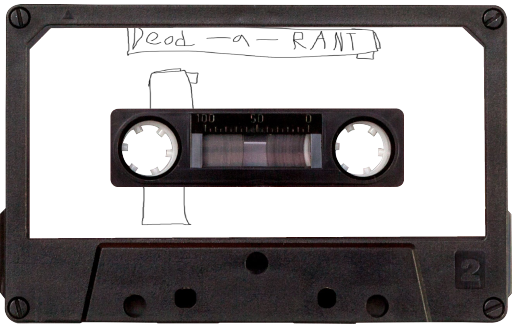 Deod -a- RANT
100 50 0
2